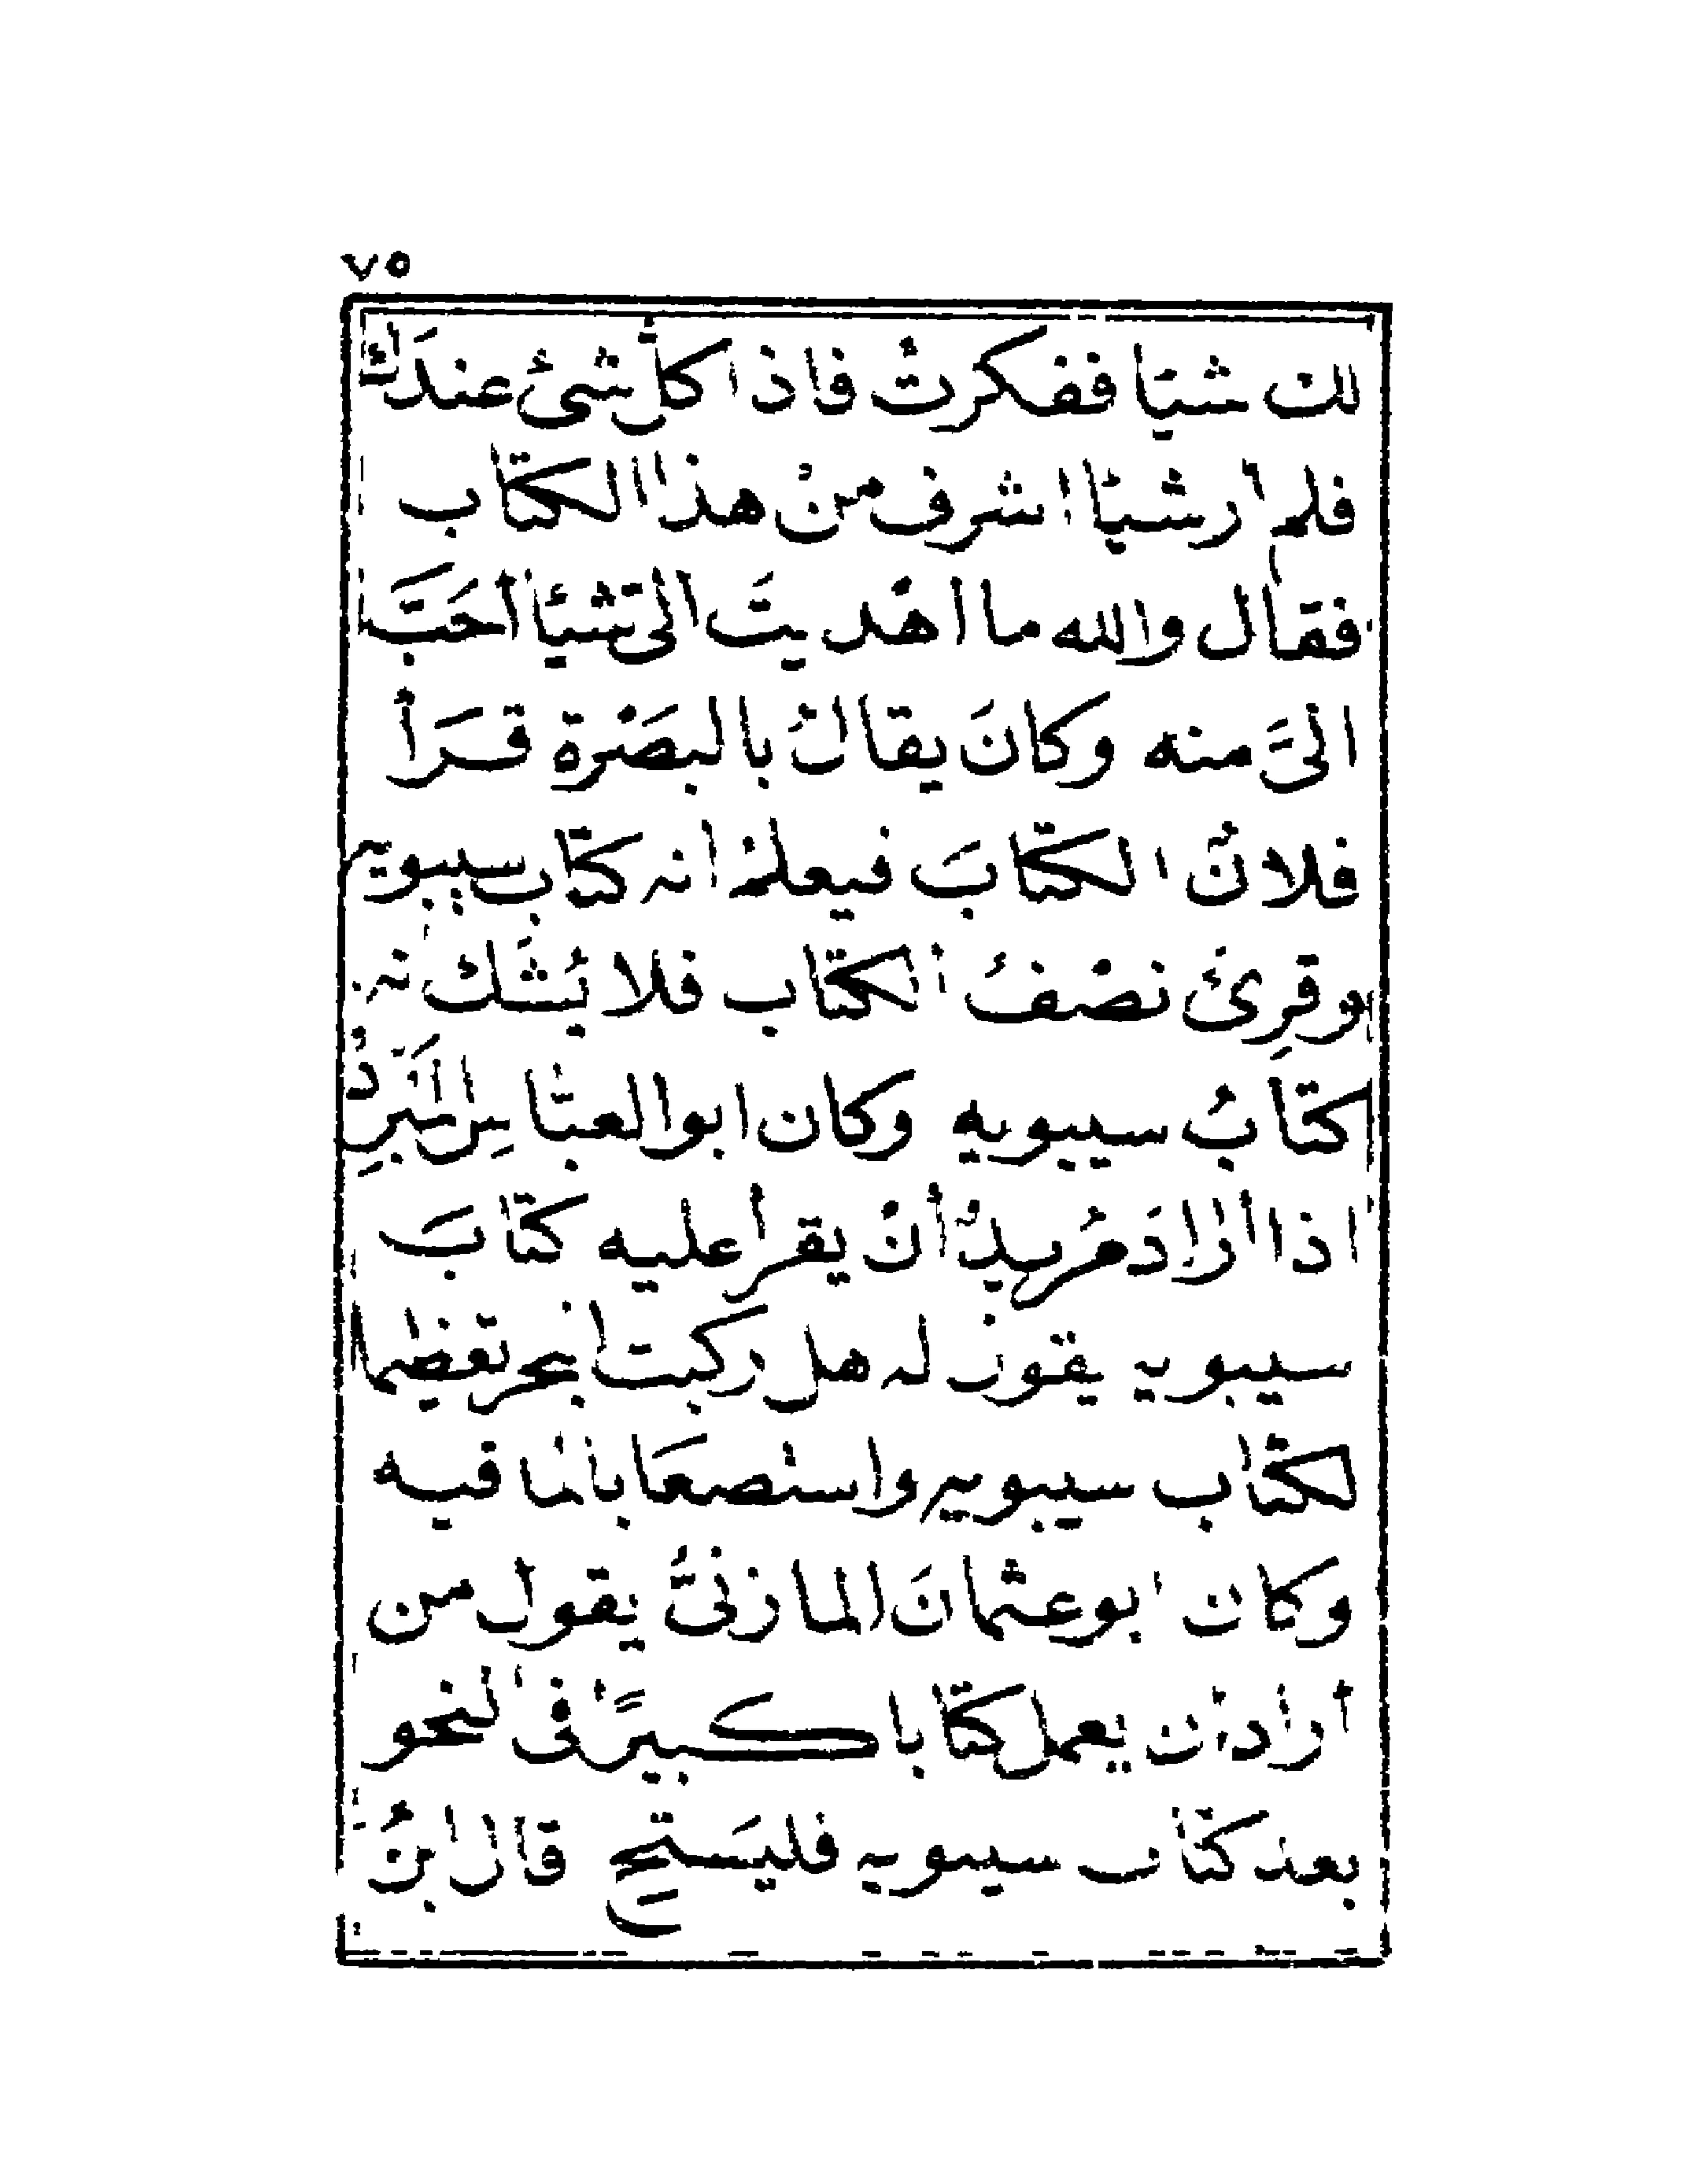 ٧٥
لك شيئا ففكرتُ فاذا كلّ شئ عندَك
فلم ار شيئا اشرف منْ هذا الكتاب
فقال والله ما اهْديتَ الىّ شيئا أحَبَّ
الىَّ منه وكانَ يقالُ بالبصَرْة قَرَأ
فلانٌ الكتابَ فيعلمْ انه كتاب سيبويه
وقرِئ نصْفُ الكتاب فلا يُشَك انه
كتابُ سيبويه وكان ابوالعبّاسِ المبَرِّدُ
اذا أرادَ مُريدٌ أنْ يقرأ عليه كتابَ
سيبويه يقول له هل ركبت البحر تعظيما
لكتاب سيبويه واستْصعَابا لما فيه
وكان ابو عثمانَ المازنىُّ يقول من
أراد ان يعمل كتابا كبيرًا فى النحو
بعد كتاب سيبويه فليسَتحىِ قال ابنُ